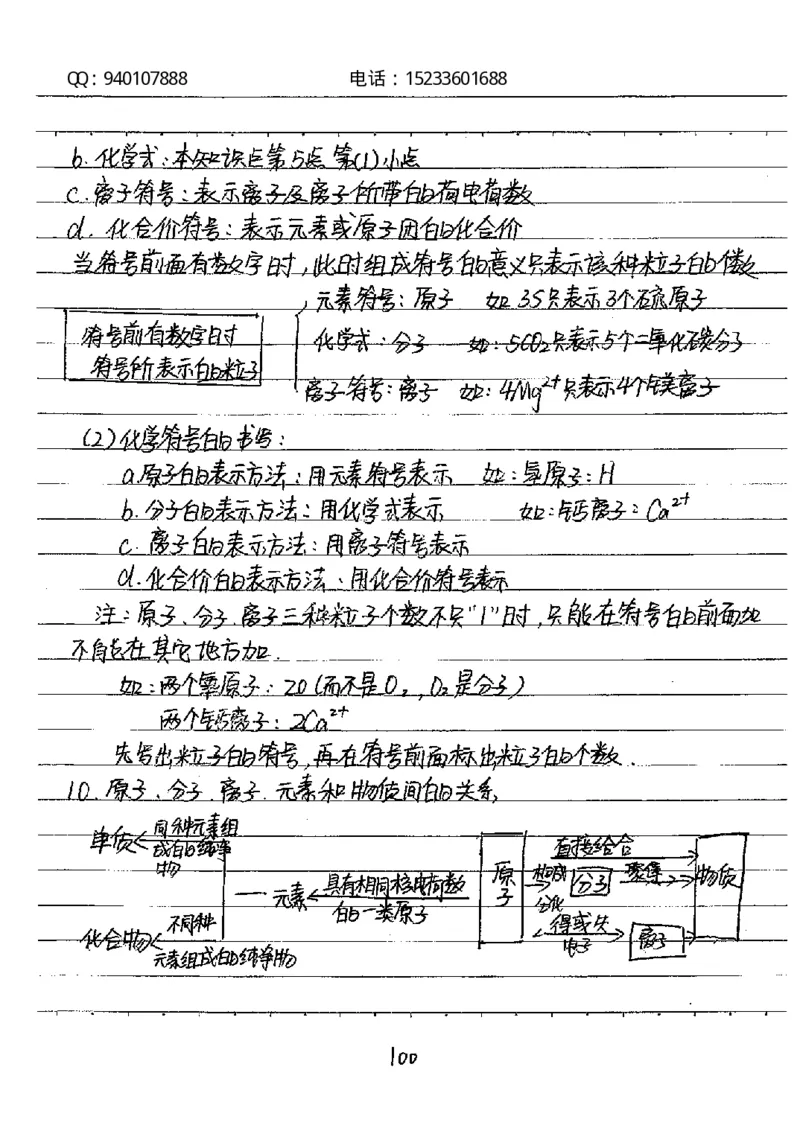 QQ：940107888 电话：15233601688
b. 化学式：本知识点第5点 第(1)小点
c. 离子符号：表示离子及离子所带的荷电荷数
d. 化合价符号：表示元素或原子团的化合价
当符号前面有数字时，此时组成符号的意义只表示该种粒子的个数
元素符号：原子 如 3S只表示3个硫原子
符号前有数字时
化学式：分子 如：5CO₂只表示5个二氧化碳分子
符号所表示的粒子
离子符号：离子 如：4Mg²⁺只表示4个镁离子
(2)化学符号的书写：
a.原子的表示方法：用元素符号表示 如：氢原子：H
b.分子的表示方法：用化学式表示 如：钙离子：Ca²⁺
c. 离子的表示方法：用离子符号表示
d.化合价的表示方法：用化合价符号表示
注：原子、分子、离子三种粒子个数不只"1"时，只能在符号的前面加
不能在其它地方加.
如：两个氧原子：2O (而不是O₂，O₂是分子)
两个钙离子：2Ca²⁺
先写出粒子的符号，再在符号前面标出粒子的个数.
10. 原子、分子、离子、元素和物质间的关系
单质 同种元素组
成的纯净
物
元素 具有相同核电荷数
的一类原子
化合物 不同种
元素组成的纯净物
原子
直接结合
构成 分子 聚集 物质
分化
得或失
电子 离子
100